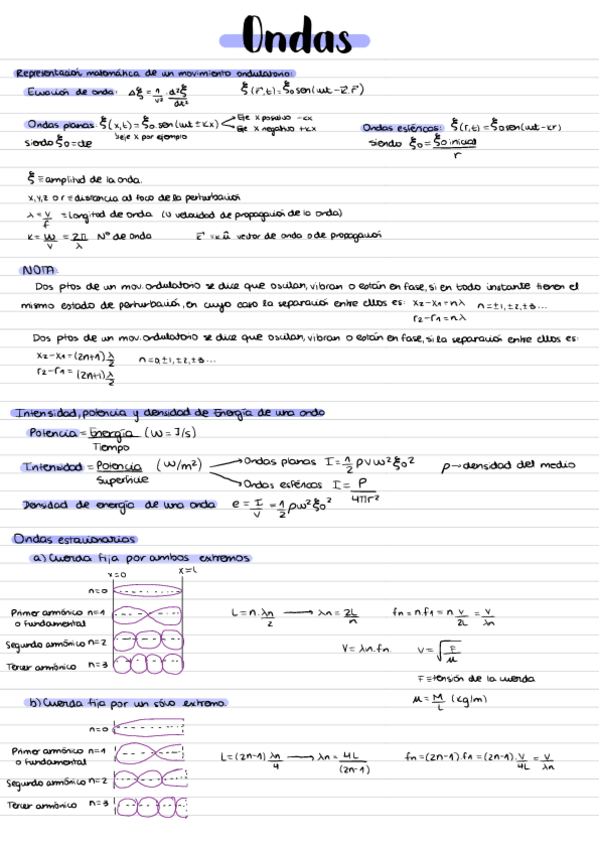 Ondas
Representación matemática de un movimiento ondulatorio:
Ecuación de onda: Δξ = 1/v² · d²ξ/dt²   ξ(r⃗,t) = ξ₀ sen(ωt - k⃗·r⃗)
Ondas planas: ξ(x,t) = ξ₀ sen(ωt ± kx) Eje x positivo -kx
Eje x negativo +kx
Ondas esféricas: ξ(r,t) = ξ₀ sen(ωt - kr)
siendo ξ₀ = cte
↳ eje x por ejemplo
siendo ξ₀ = ξ₀ inicial / r
ξ ≡ amplitud de la onda.
x, y, z o r ≡ distancia al foco de la perturbación
λ = v/f ≡ longitud de onda (v velocidad de propagación de la onda)
k = ω/v = 2π/λ Nº de onda   k⃗ = k û vector de onda o de propagación
NOTA:
Dos ptos de un mov. ondulatorio se dice que oscilan, vibran o están en fase, si en todo instante tienen el
mismo estado de perturbación, en cuyo caso la separación entre ellos es: x₂-x₁ = nλ   n = ±1, ±2, ±3...
r₂-r₁ = nλ
Dos ptos de un mov. ondulatorio se dice que oscilan, vibran o están en fase, si la separación entre ellos es:
x₂-x₁ = (2n+1) λ/2   n = 0, ±1, ±2, ±3...
r₂-r₁ = (2n+1) λ/2
Intensidad, potencia y densidad de Energía de una onda
Potencia = Energía/Tiempo (W = J/s)
Intensidad = Potencia/Superficie (W/m²) → Ondas planas I = 1/2 ρvω²ξ₀²   ρ → densidad del medio
→ Ondas esféricas I = P/4πr²
Densidad de energía de una onda e = I/v = 1/2 ρω²ξ₀²
Ondas estacionarias
a) Cuerda fija por ambos extremos
x=0   x=L
n=0
Primer armónico n=1
o fundamental
L = n·λn/2 → λn = 2L/n   fn = n·f₁ = n v/2L = v/λn
Segundo armónico n=2
V = λn·fn   v = √(F/μ)
Tercer armónico n=3
F ≡ tensión de la cuerda
μ = M/L (kg/m)
b) Cuerda fija por un sólo extremo
n=0
Primer armónico n=1
o fundamental
L = (2n-1) λn/4 → λn = 4L/(2n-1)   fn = (2n-1)·f₁ = (2n-1)·v/4L = v/λn
Segundo armónico n=2
Tercer armónico n=3